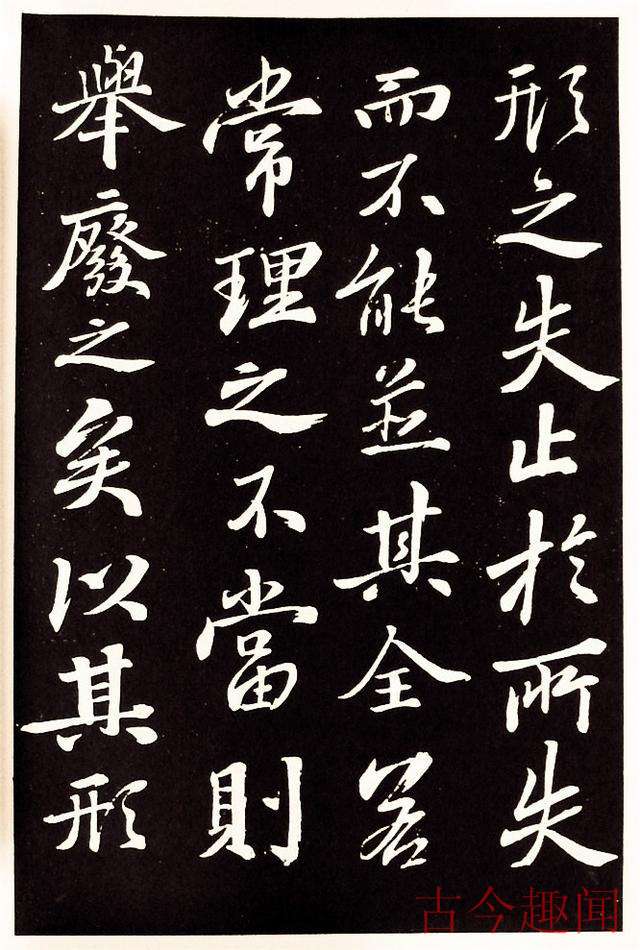 形之失止於所失
而不能並其全若
常理之不當則
舉廢之矣以其形
古今趣闻